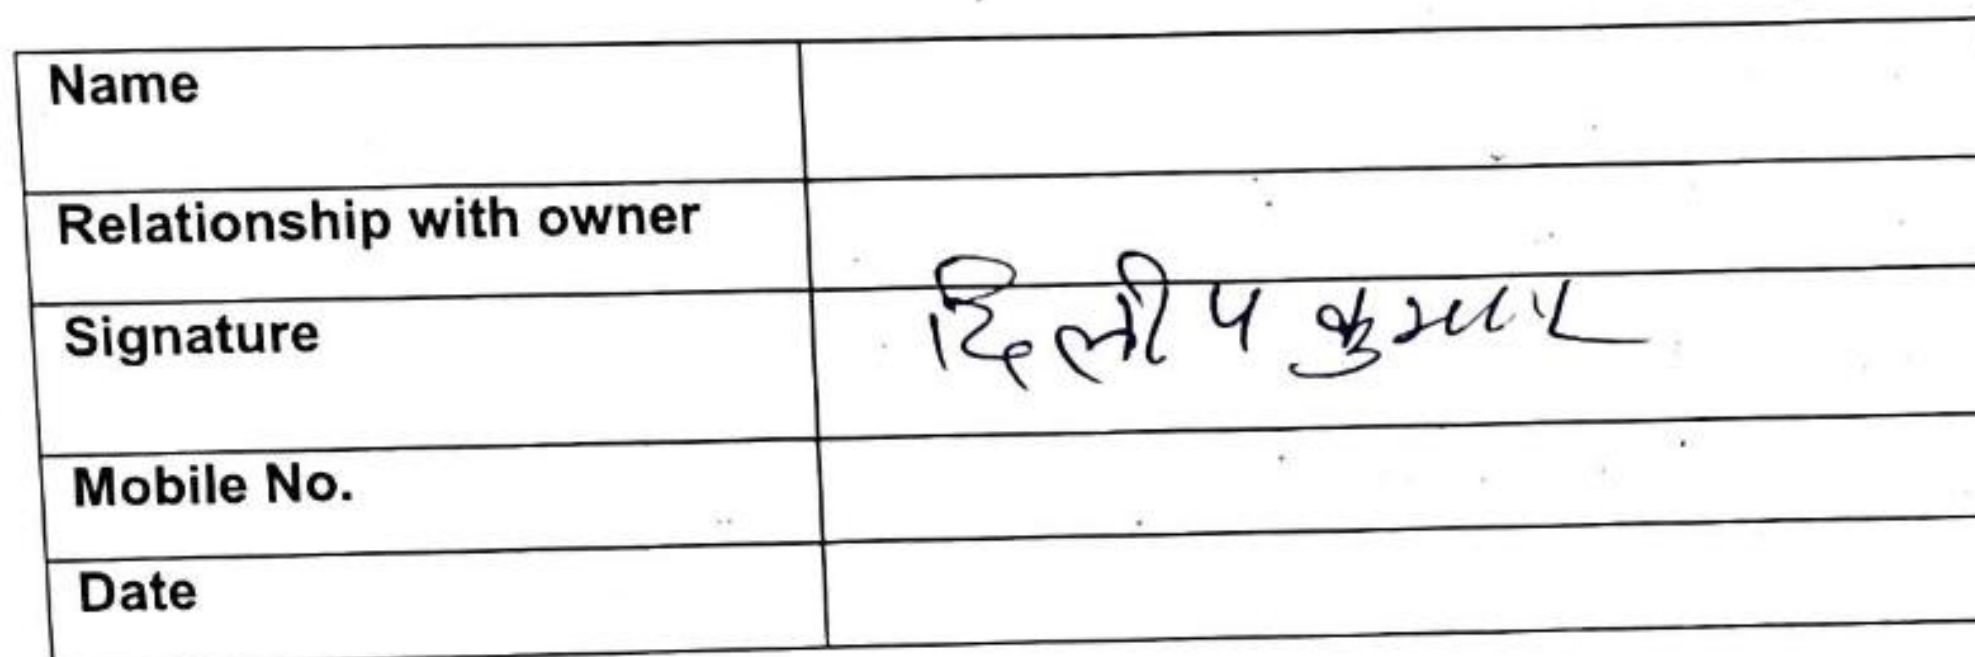 Name
Relationship with owner
Signature दिलीप कुमार
Mobile No.
Date